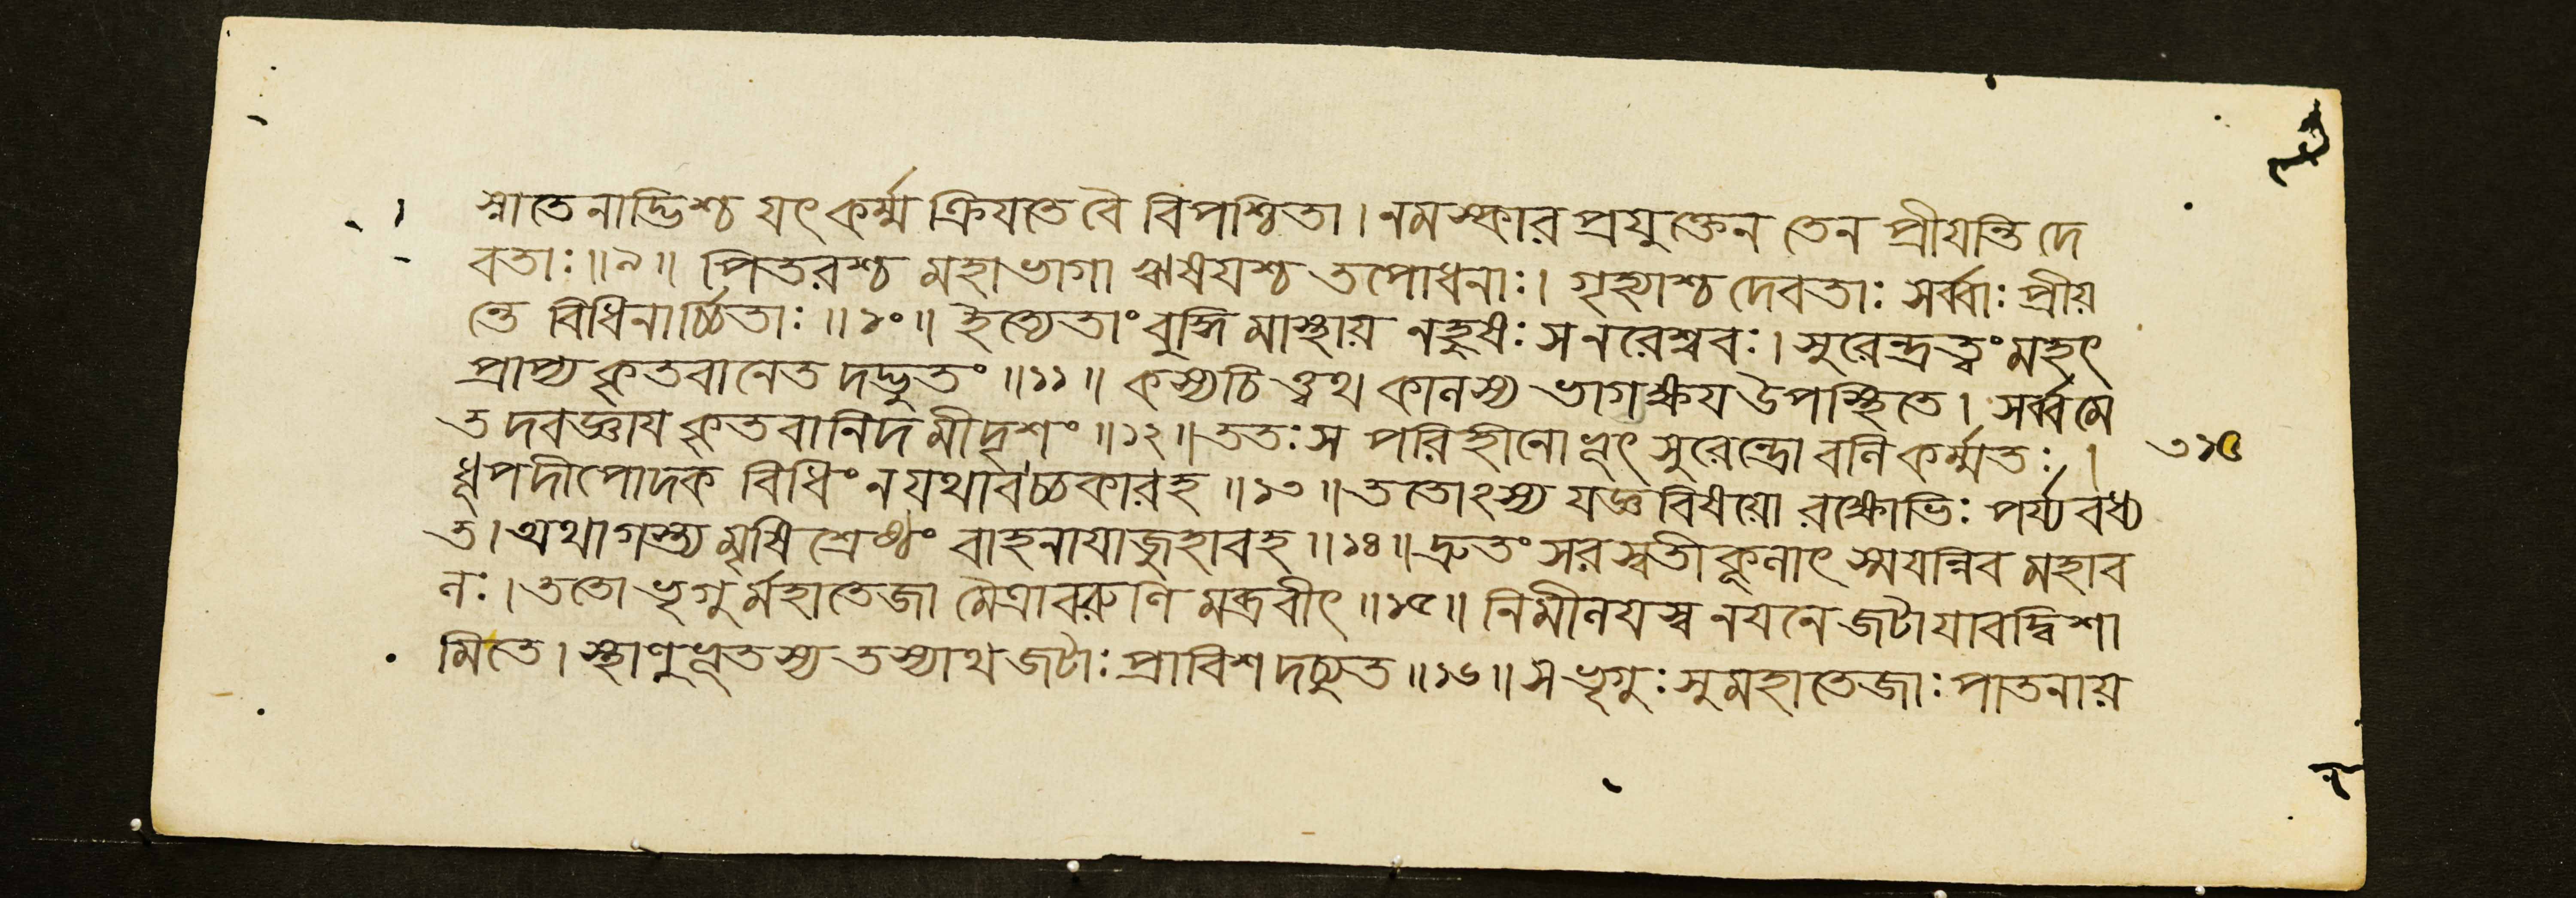 স্নাতেনাদ্ভিশ্চ যৎ কর্ম্ম ক্রিযতে বৈ বিপশ্চিতা । নমস্কার প্রযুক্তেন তেন প্রীযন্তি দে
বতাঃ ॥ ৯ ॥ পিতরশ্চ মহাভাগা ঋষযশ্চ তপোধনাঃ । গৃহ্যাশ্চ দেবতাঃ সর্ব্বাঃ প্রীয়
ন্তে বিধিনার্চ্চিতাঃ ॥ ১০ ॥ ইত্যেতাং বুদ্ধি মাস্থায় নহুষঃ স নরেশ্বরঃ । সুরেন্দ্রত্বং মহৎ
প্রাপ্য কৃতবানেত দদ্ভুতং ॥ ১১ ॥ কস্যচি ত্ত্বথ কালস্য ভাগক্ষয উপস্থিতে । সর্ব্বমে
তদবজ্ঞায কৃতবানিদ মীদৃশং ॥ ১২ ॥ ততঃ স পরিহীনোভূৎ সুরেন্দ্রো বলি কর্ম্মতঃ ।
ধূপদীপোদক বিধিং ন যথাবচ্চকারহ ॥ ১৩ ॥ ততোঽস্য যজ্ঞ বিষয়ো রক্ষোভিঃ পর্য্যবধ্য
ত । অথাগস্ত্য মৃষি শ্রেষ্ঠং বাহনাযাজুহাবহ ॥ ১৪ ॥ দ্রুতং সরস্বতী কূলাৎ স্ময়ন্নিব মহাব
লঃ । ততো ভৃগুর্মহাতেজা মৈত্রাবরুণি মব্রবীৎ ॥ ১৫ ॥ নিমীলযস্ব নযনে জটা যাবদ্বিশা
মিতে । স্থাণুভূতস্য তস্যাথ জটাঃ প্রাবিশ দচ্যুত ॥ ১৬ ॥ স ভৃগুঃ সুমহাতেজাঃ পাতনায়
৩১৫